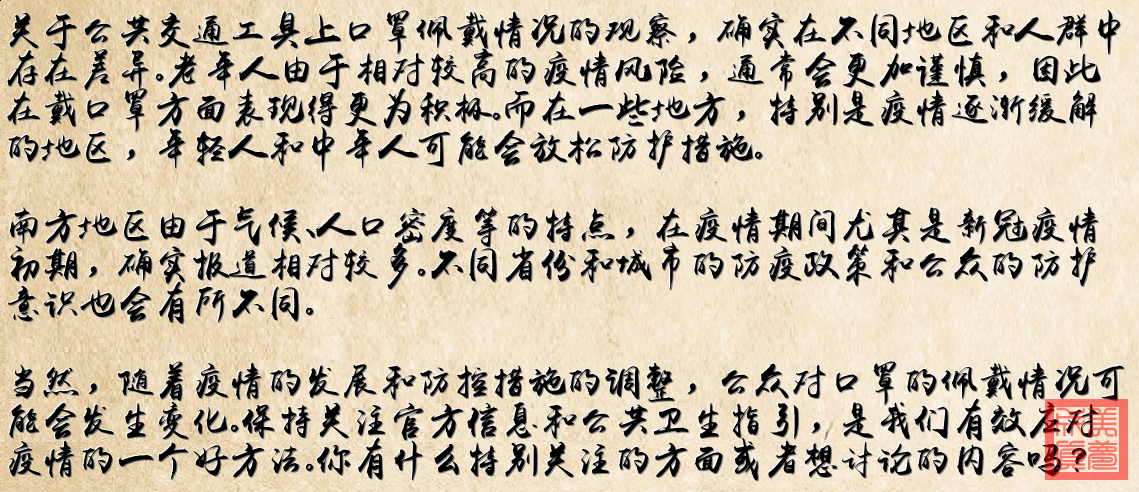 关于公共交通工具上口罩佩戴情况的观察，确实在不同地区和人群中
存在差异。老年人由于相对较高的疫情风险，通常会更加谨慎，因此
在戴口罩方面表现得更为积极。而在一些地方，特别是疫情逐渐缓解
的地区，年轻人和中年人可能会放松防护措施。
南方地区由于气候、人口密度等的特点，在疫情期间尤其是新冠疫情
初期，确实报道相对较多。不同省份和城市的防疫政策和公众的防护
意识也会有所不同。
当然，随着疫情的发展和防控措施的调整，公众对口罩的佩戴情况可
能会发生变化。保持关注官方信息和公共卫生指引，是我们有效应对
疫情的一个好方法。你有什么特别关注的方面或者想讨论的内容吗？